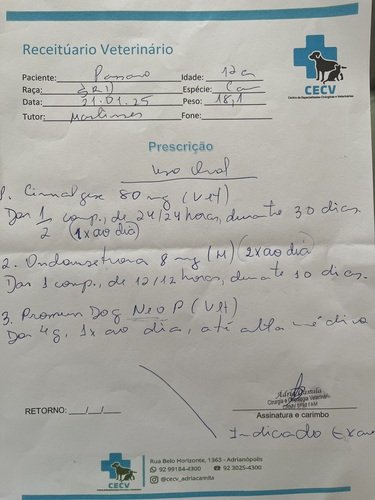 Receituário Veterinário
CECV
Centro de Especialidades Cirúrgicas e Veterinárias
Paciente: Idade: 12a
Raça: SRD Espécie: Can
Data: 21.01.25 Peso: 18,1
Tutor: Fone:
Prescrição
Uso Oral
1. Cimalgex 80 mg (Vet)
Dar 1/2 comp., de 24/24 horas, durante 30 dias
(1x ao dia)
2. Ondansetrona 8 mg (M) (2x ao dia)
Dar 1 comp., de 12/12 horas, durante 10 dias.
3. Promun Dog Neo P (Vet)
Dar 4g, 1x ao dia, até alta médica
RETORNO: __/__/__
Assinatura e carimbo
Indicado
CECV
Rua Belo Horizonte, 1363 - Adrianópolis
92 99184-4300 92 3025-4300
@cecv_adriacamita